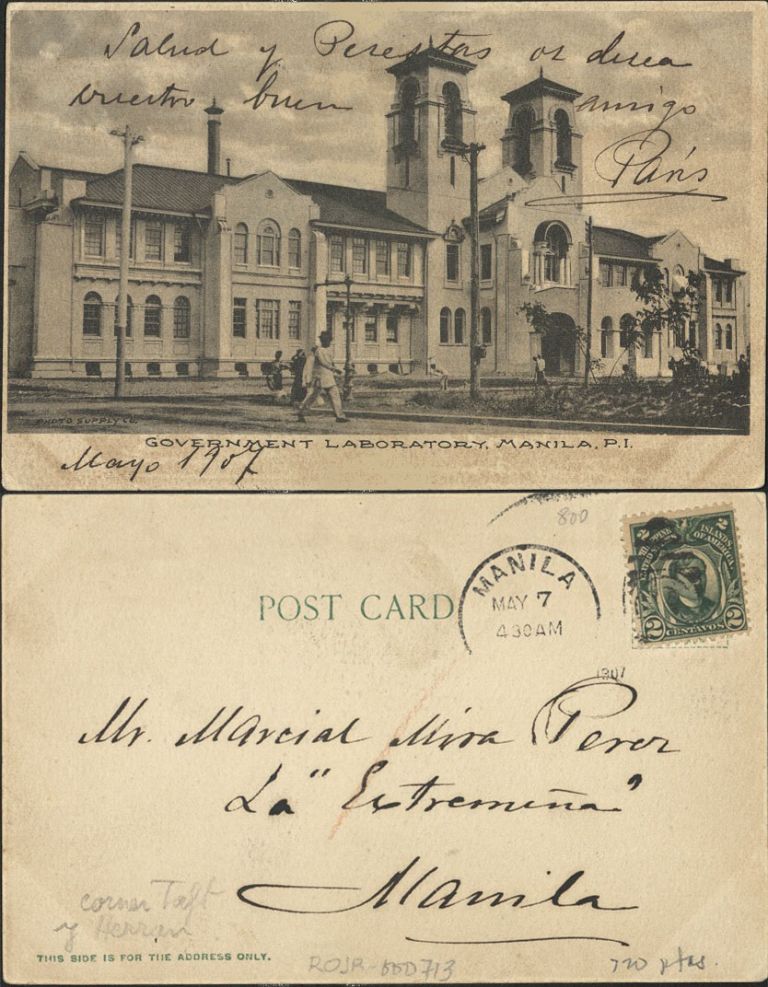 Salud y Pesetas os desea
vuestro buen amigo
París
PHOTO SUPPLY CO.
GOVERNMENT LABORATORY, MANILA, P.I.
Mayo 1907
800
POST CARD
MANILA
MAY 7
430AM
1907
2 2
PHILIPPINE ISLANDS
OF AMERICA
2 CENTAVOS 2
Mr. Marcial Mira Perez
La "Extremeña"
Manila
corner Taft
y Herran
THIS SIDE IS FOR THE ADDRESS ONLY.
ptas.